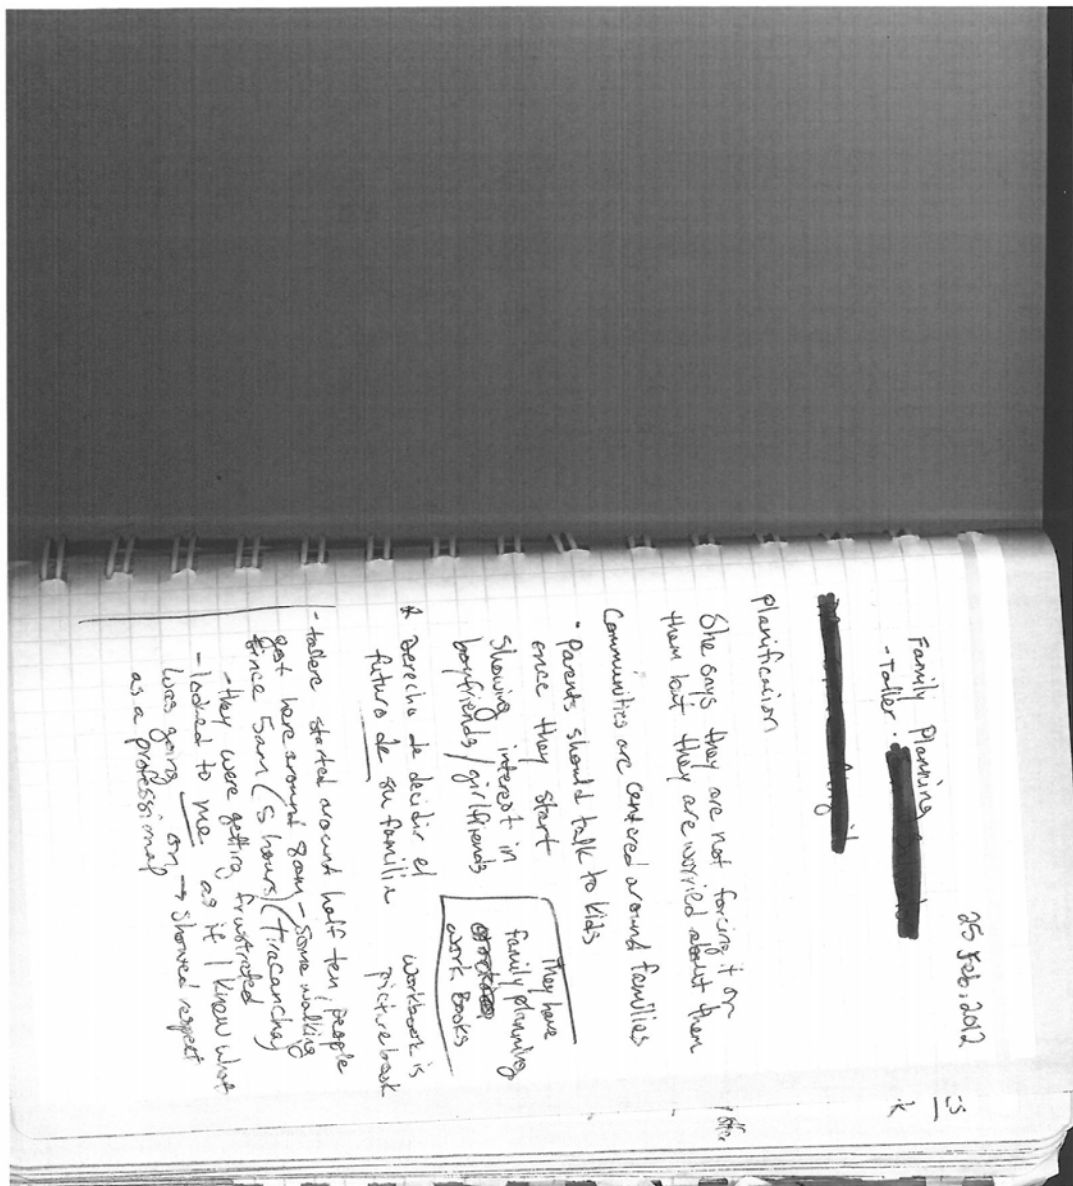 25 Feb. 2012
Family Planning
-Taller.
Planificacion
She says they are not forcing it on
them but they are worried about them
Communities are centered around families
• Parents should talk to kids
once they start
showing interest in
boyfriends/girlfriends
They have
family planning
work Books
* Derecho de decidir el
futuro de su familia
workbook is
picture book
- tallere started around half ten, people
gest here around 8am - some walking
since 5am (5 hours) (Tiracancha)
- they were getting frustrated
- looked to me as if I knew what
was going on → showed respect
as a professional